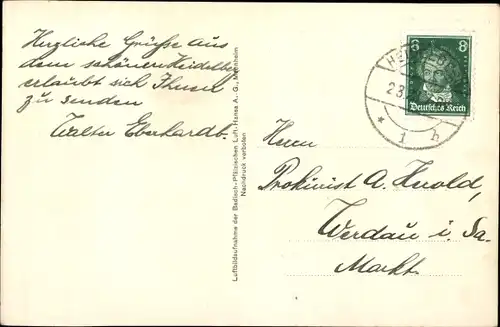 Herzliche Grüsse aus
dem schönen Heidelberg
erlaubt sich Ihnen
zu senden
Walter Eberhardt.
Luftbildaufnahme der Badisch-Pfälzischen Luft-Hansa A.-G., Mannheim
Nachdruck verboten
8 8
Deutsches Reich
HEI
23.
* 1 h
Herrn
Prokurist A. Herold,
Werdau i. Sa.
Markt.